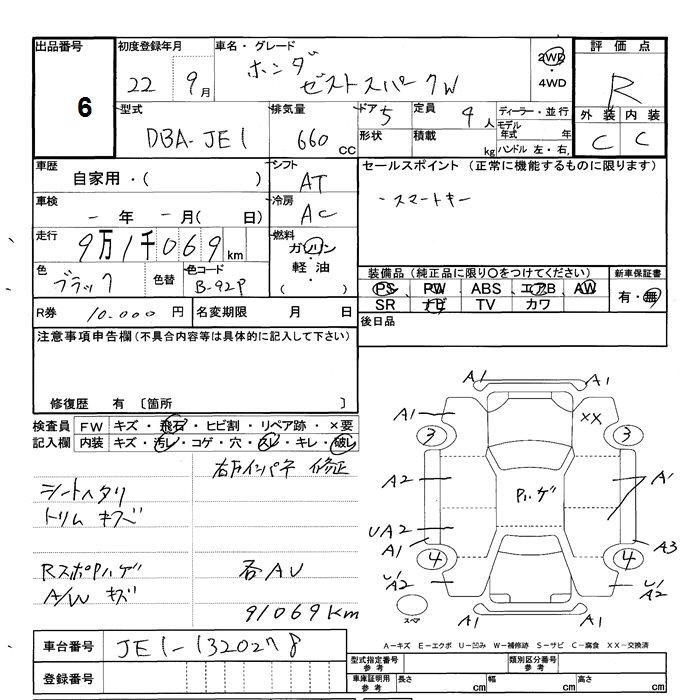 出品番号 初度登録年月 車名・グレード 評価点
6 22 9月 ホンダ ゼストスパーク W 2WD・4WD R
型式 排気量 ドア 5 定員 4人 ディーラー・並行 外装 内装
DBA-JE1 660cc 形状 積載 kg モデル年式 年 ハンドル 左・右, C C
車歴 シフト セールスポイント (正常に機能するものに限ります)
自家用・( ) AT
・スマートキー
車検 冷房
- 年 - 月( 日) AC
走行 燃料
9万1千069km ガソリン・軽油・( )
色 色替 色コード 装備品(純正品に限り○をつけてください) 新車保証書
ブラック B-92P PS PW ABS エアB AW 有・無
SR ナビ TV カワ
R券 10.000円 名変期限 月 日 後日品
注意事項申告欄(不具合内容等は具体的に記入して下さい)
修復歴 有 〔箇所 〕
検査員 FW キズ・飛石・ヒビ割・リペア跡・×要
記入欄 内装 キズ・汚レ・コゲ・穴・スレ・キレ・破レ
右下インパネ 修正
シートヘタリ
トリム キズ
RスポPハゲ 各AU
A/W キズ
91069Km
A1 A1
A1 XX
3 3
A2 Pハゲ A1
UA2
A1 A3
4 4
U/A2 U/A2
スペア
車台番号 JE1-1320278
A-キズ E-エクボ U-凹み W-補修跡 S-サビ C-腐食 XX-交換済
型式指定番号 参考 類別区分番号 参考
登録番号 車庫証明用 参考 長さ cm 幅 cm 高さ cm